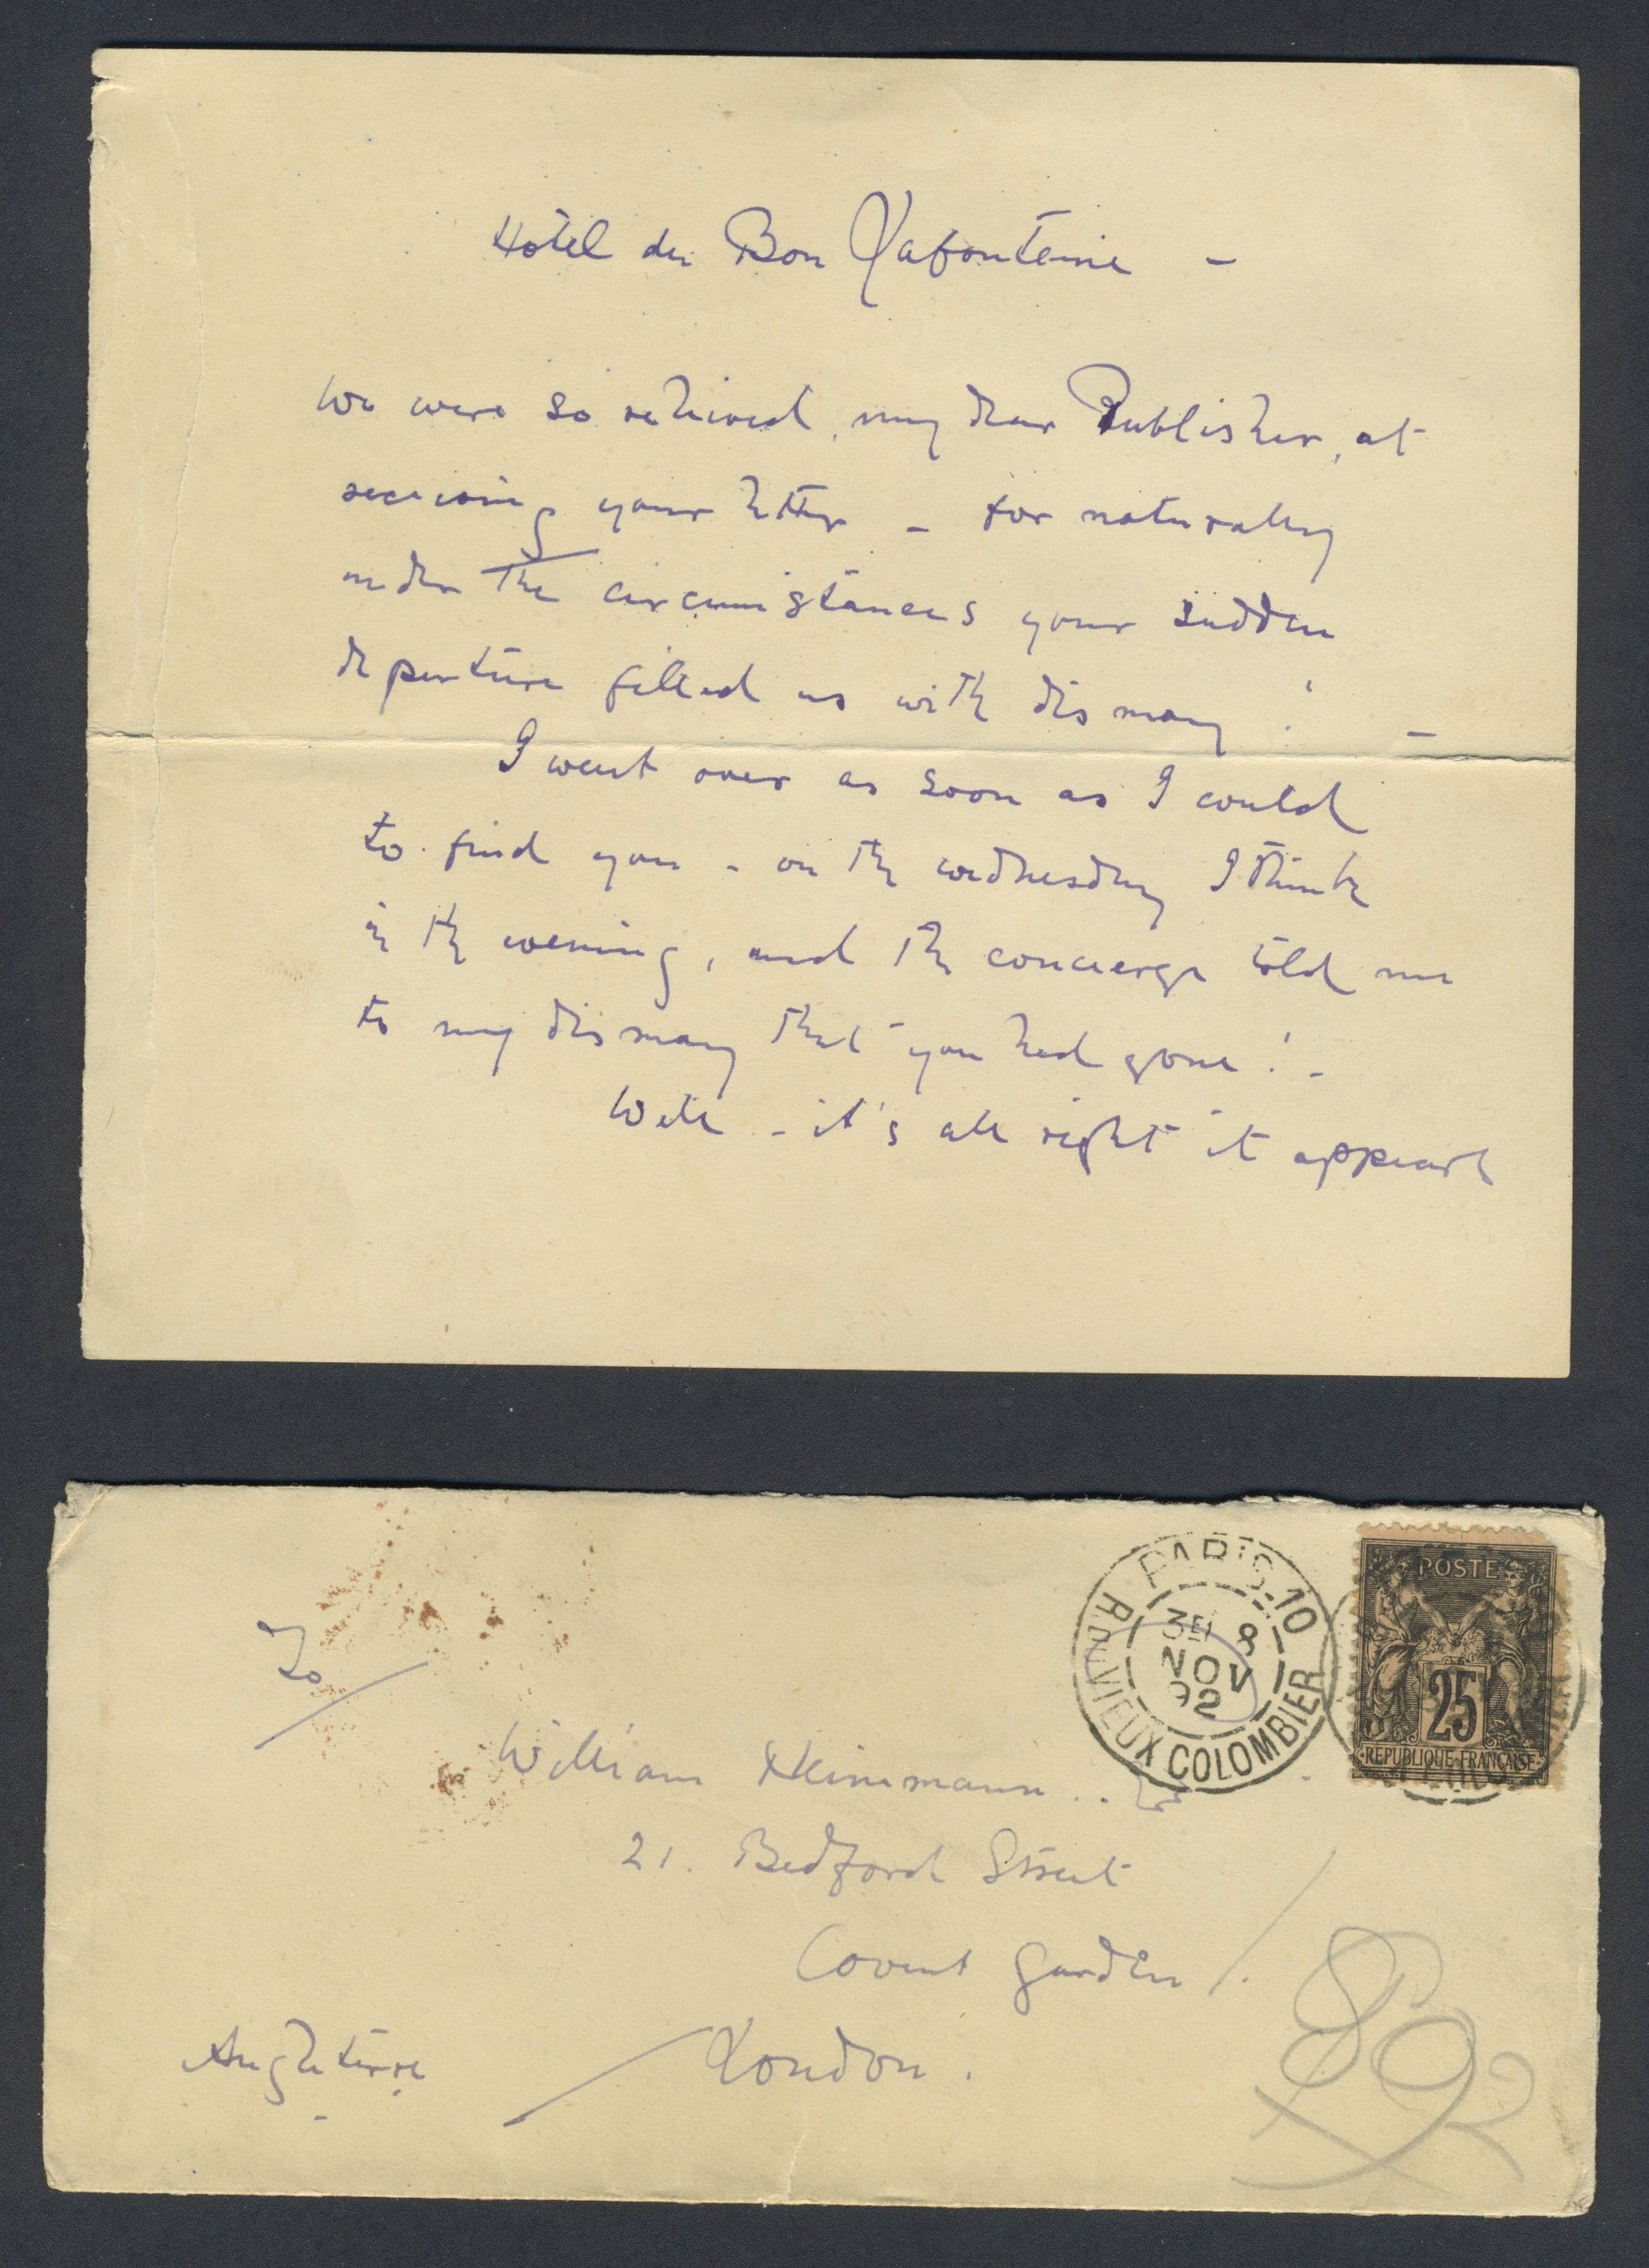 Hôtel du Bon Lafontaine -
We were so relieved, my dear Publisher, at
receiving your letter - for naturally
under the circumstances your sudden
departure filled us with dismay! -
I went over as soon as I could
to find you - on the wednesday I think
in the evening, and the concierge told me
to my dismay that you had gone! -
Well - it's all right it appears
PARIS.10
3E 8
NOV
92
R. DU VIEUX COLOMBIER
POSTES
25
REPUBLIQUE FRANÇAISE
To
William Heinemann
21. Bedford Street
Covent Garden.
London.
Angleterre